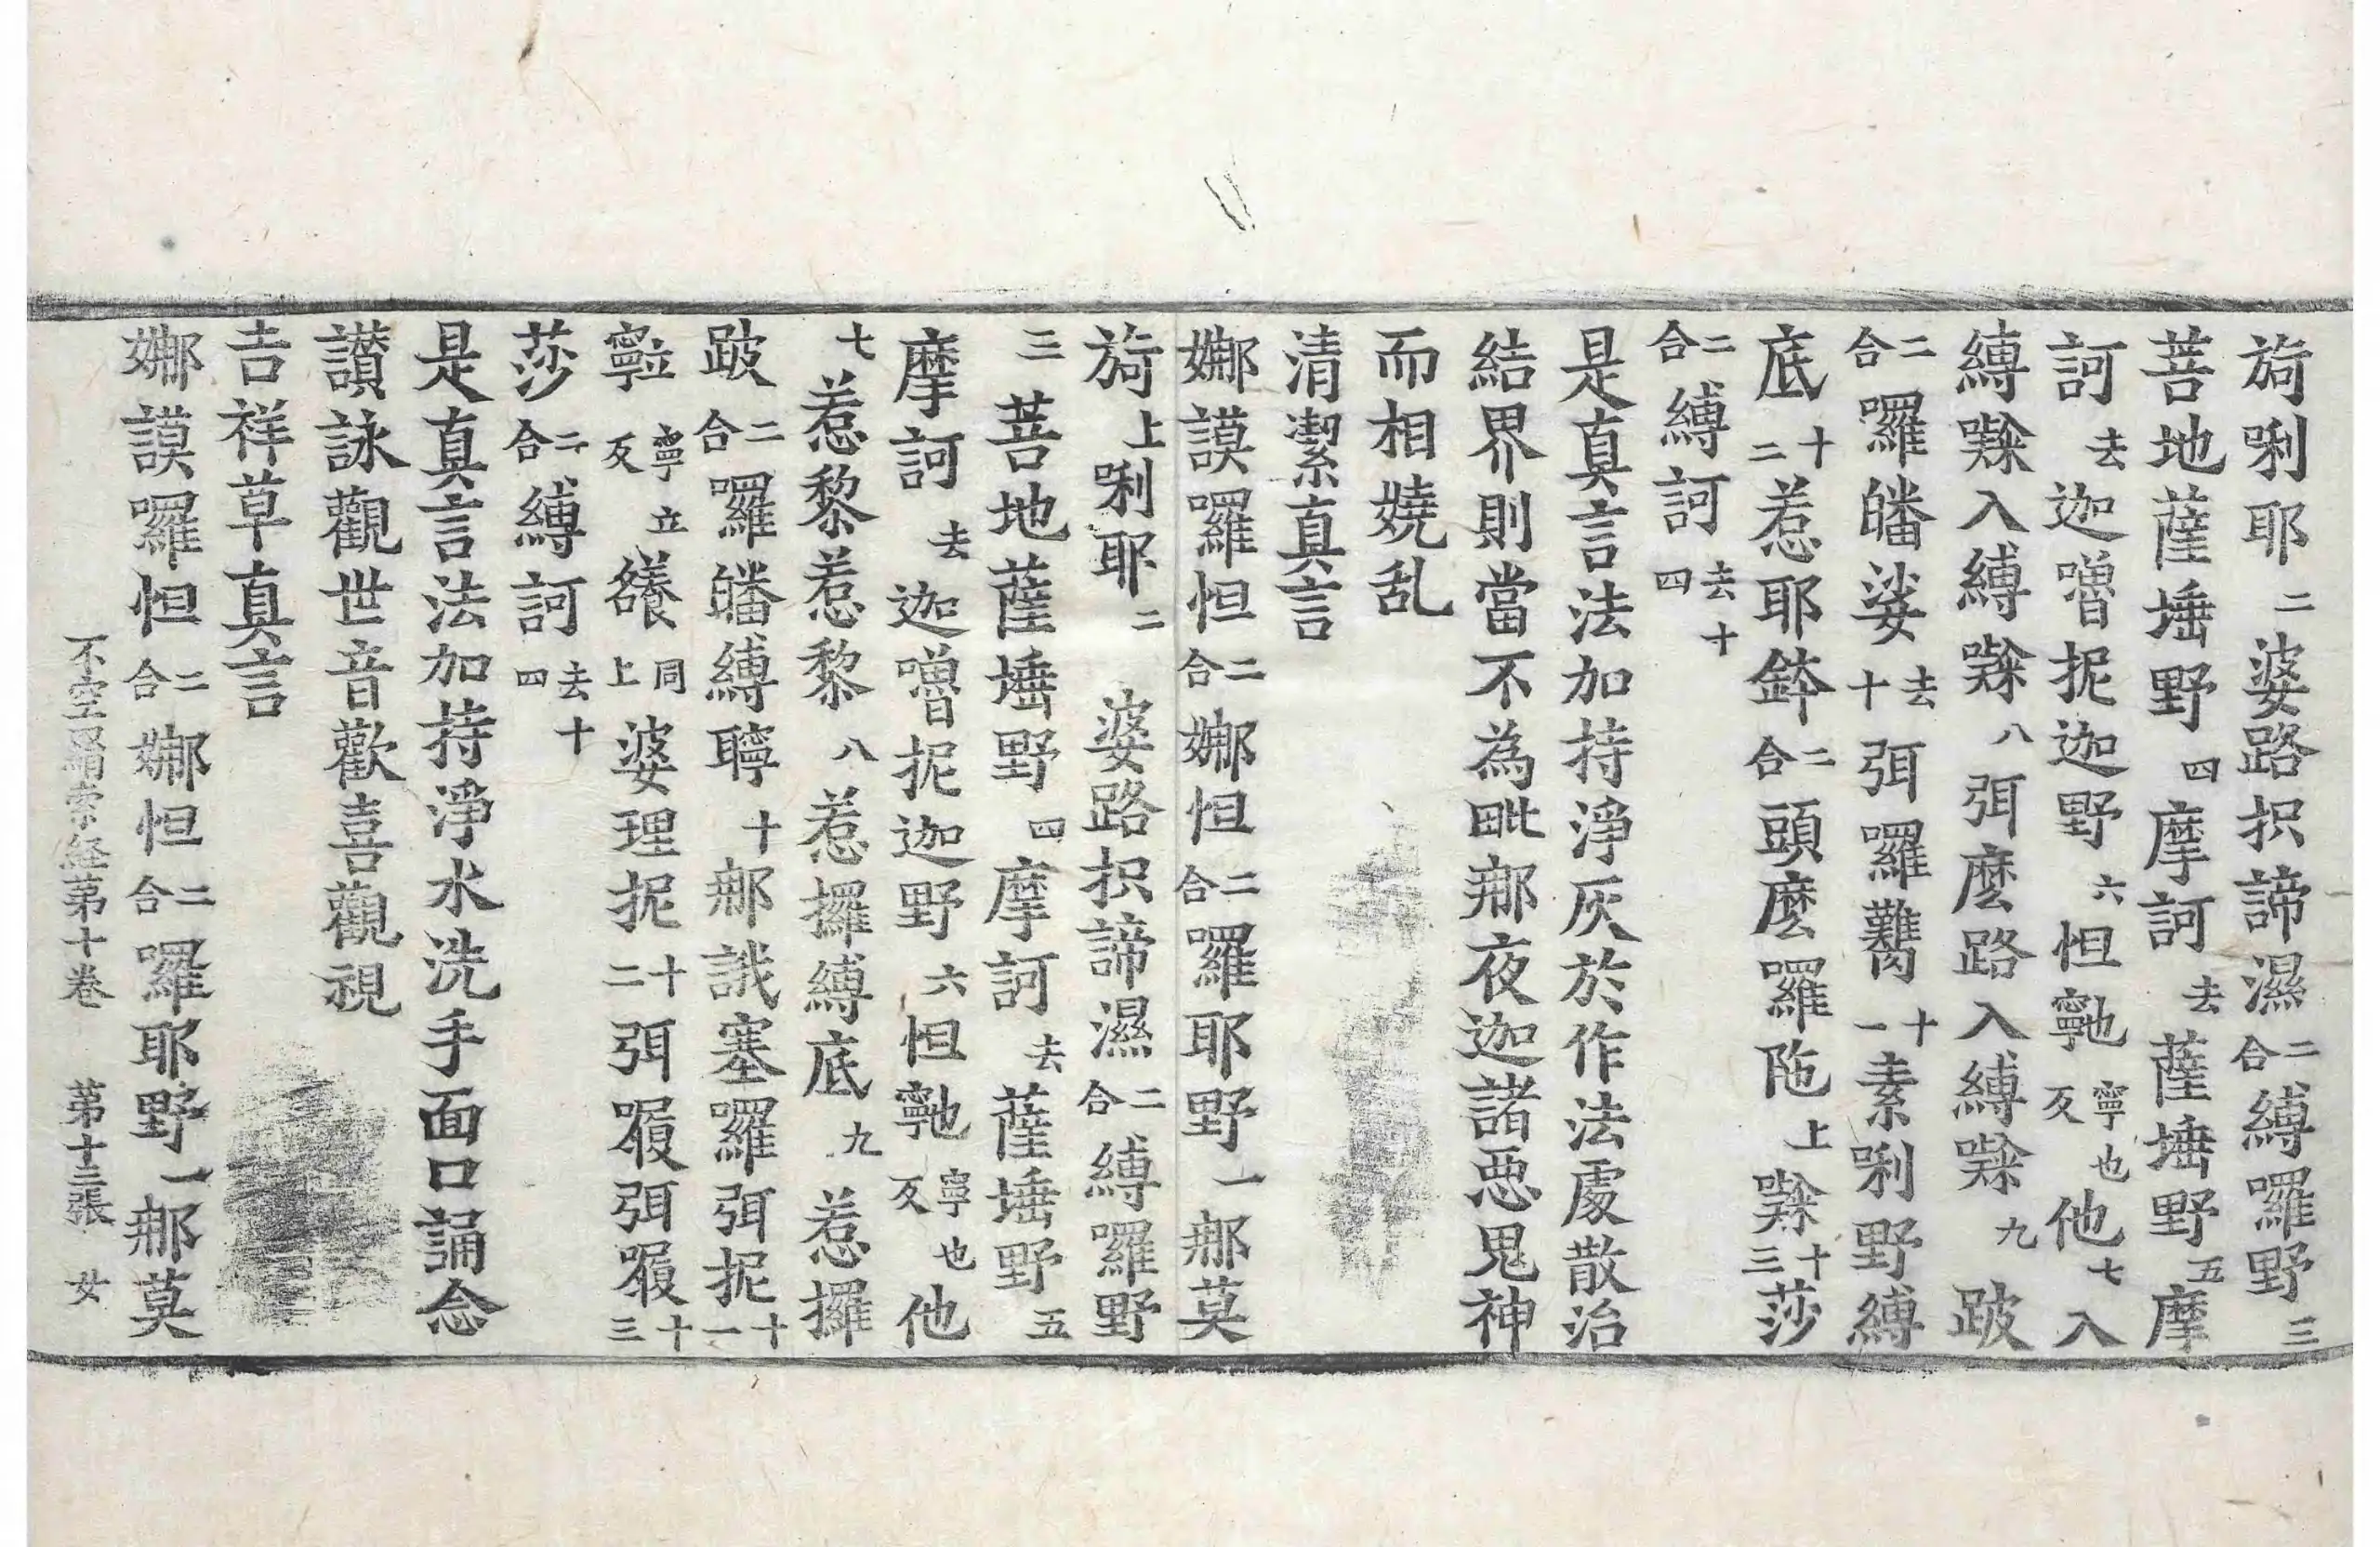 旖唎耶二婆路枳諦濕二合縛囉野三
菩地薩埵野四摩訶去薩埵野五摩
訶去迦嚕抳迦野六怛㝕寧也反他七入
縛㘑入縛㘑八弭麼路入縛㘑九跛
二合囉皤娑去十弭囉鸛十一素唎野縛
底十二惹耶鉢二合頭麼囉陁上㘑十三莎
二合縛訶去十四
是真言法加持淨灰於作法處散治
結界則當不為毗䢿夜迦諸惡鬼神
而相嬈乱
清潔真言
娜謨囉怛二合娜怛二合囉耶野一䢿莫
旖上唎耶二婆路枳諦濕二合縛囉野
三菩地薩埵野四摩訶去薩埵野五
摩訶去迦嚕抳迦野六怛㝕寧也反他
七惹黎惹黎八惹攞縛底九惹攞
跛二合囉皤縛聹十䢿誐塞囉弭抳十一
寧立反立䬵同上婆理抳十二弭履弭履十三
莎二合縛訶去十四
是真言法加持淨水洗手面口誦念
讃詠觀世音歡喜觀視
吉祥草真言
娜謨囉怛二合娜怛二合囉耶野一䢿莫
不空羂索経第十卷 第十三張 女